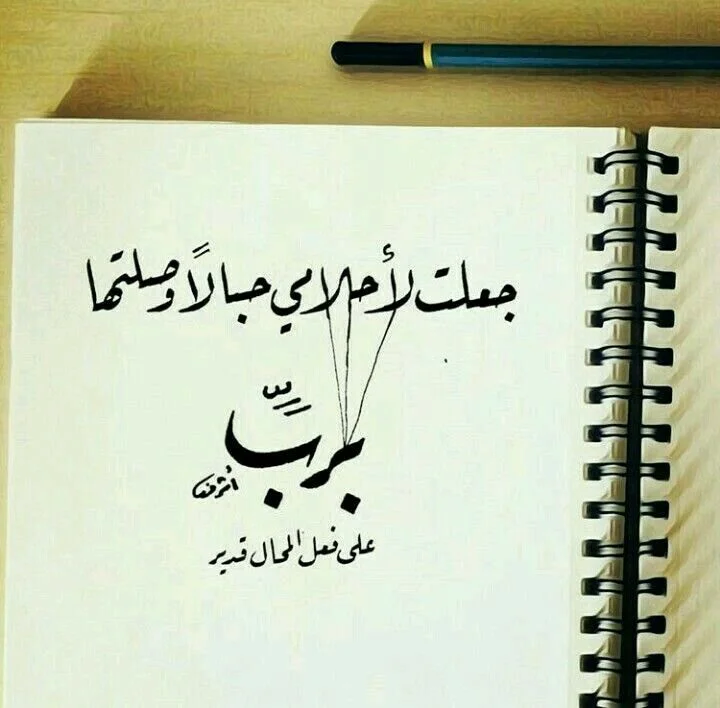 جعلت لأحلامي حبالاً وصلتها
بربٍّ
على فعل المحال قدير